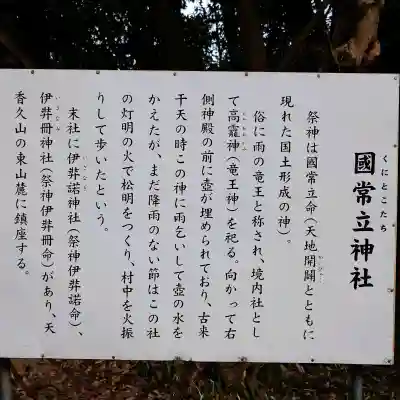 國常立神社
くにとこたち
祭神は國常立命（天地開闢とともに
かいびゃく
現れた国土形成の神）。
俗に雨の竜王と称され、境内社とし
て高龗神（竜王神）を祀る。向かって右
側神殿の前に壺が埋められており、古来
干天の時この神に雨乞いして壺の水を
かえたが、まだ降雨のない節はこの社
の灯明の火で松明をつくり、村中を火振
りして歩いたという。
末社に伊弉諾神社（祭神伊弉諾命）、
伊弉冊神社（祭神伊弉冊命）があり、天
香久山の東山麓に鎮座する。